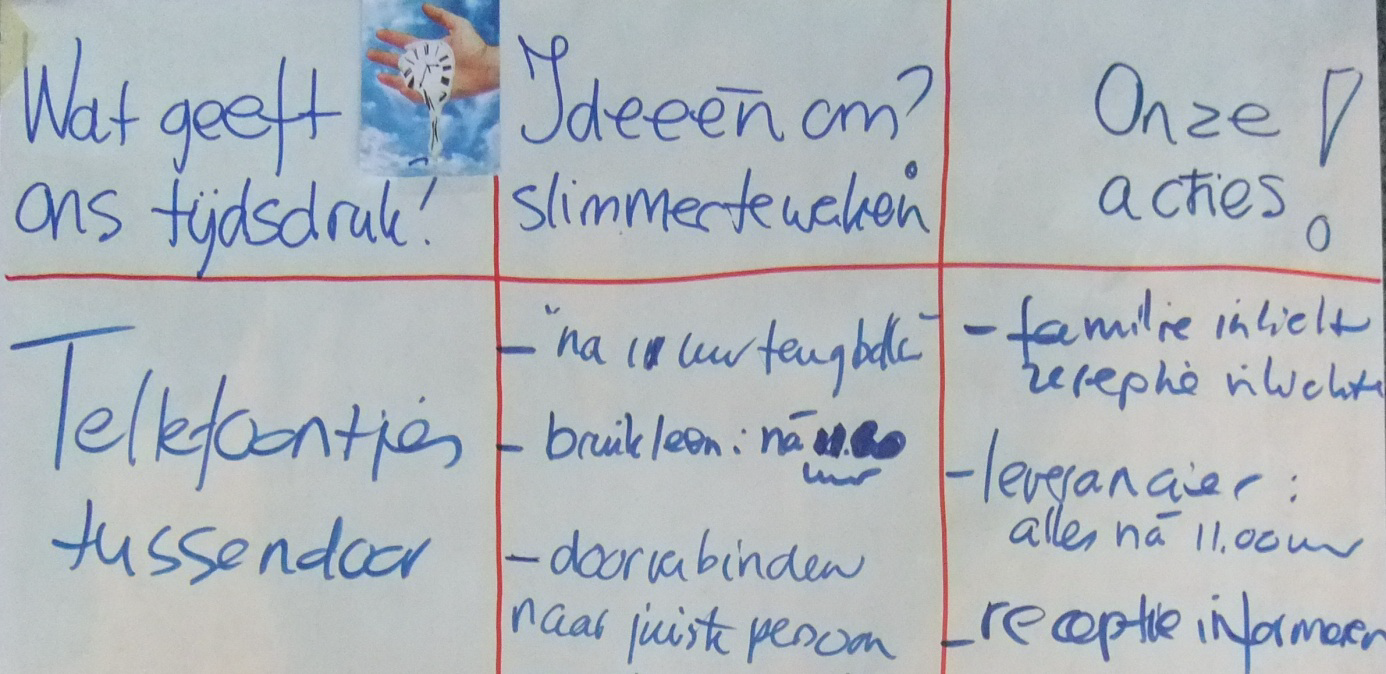 Wat geeft
ons tijdsdruk!
Ideeën om?
slimmer te weken
Onze
acties!
Telkefoontjes
tussendoor
- "na 11 uur terugbellc"
- bruikleen: ná
uur
- doorverbinden
naar juiste persoon
- familie
receptie
- leverancier:
alles ná 11.00 uur
- receptie informeren